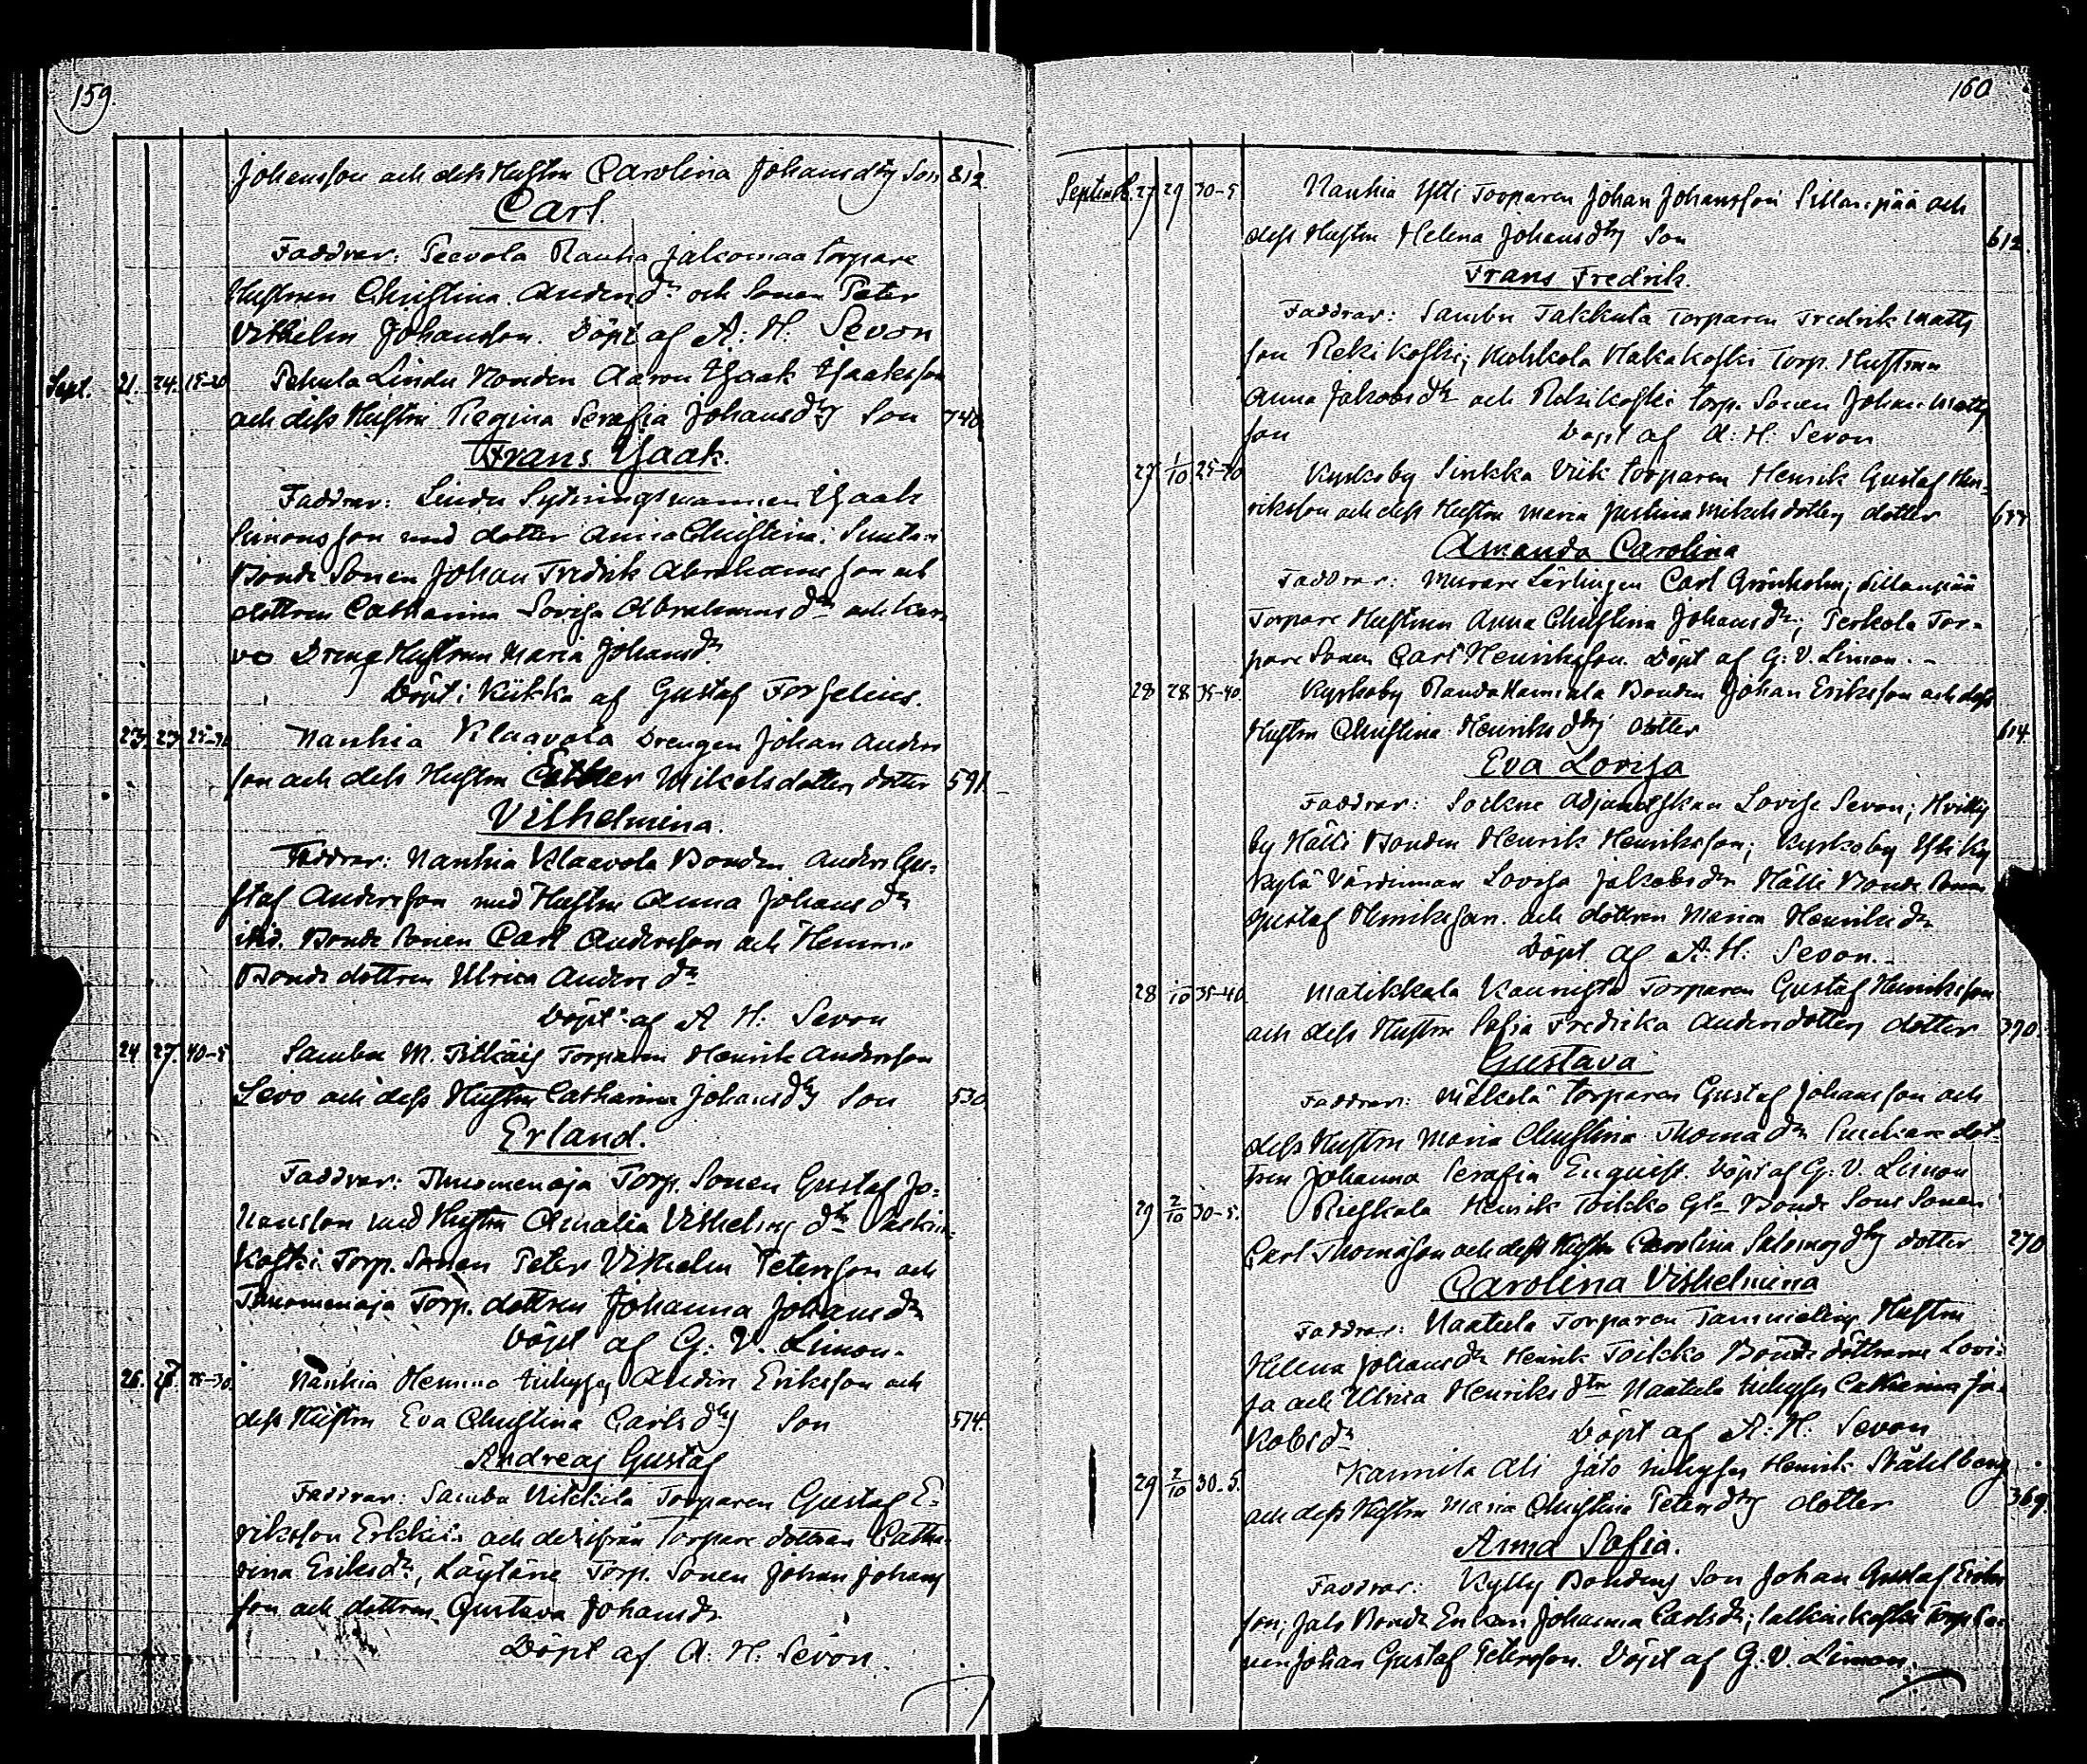 159.
Johansson och dess Hustru Carolina Johansdtrs Son 812.
Carl.
Faddrar: Peevola Rauha Jalconiaa torpare
Hustrun Christina Andersdr och Sonen Peter
Vilhelm Johansson. Döpt af A. H. Sevon
Sept. 21. 24. 15-20 Pehula Lindu Bonden Aaron Isaak Isaaksson
och dess Hustru Regina Serafia Johansdtrs Son 740
Frans Isaak.
Faddrar: Lindu Sytningsmannen Isaak
Simonsson med dotter Anna Christina;
Bonde Sonen Johan Fredrik Abrahamsson och
dottren Catharina Lovisa Abrahamsdr och Kar-
vo Dreng Hustrun Maria Johansdr
Döpt i Kiikka af Gustaf Forselius.
23. 23. 25-30 Nanhia Klaavola Drengen Johan Anders
son och dess Hustru Esther Mikelsdotters dotter 591.
Vilhelmina.
Faddrar: Nanhia Klaavola Bonden Anders Gu-
staf Andersson med Hustru Anna Johansdr
ibid. Bonde Sonen Carl Andersson och Hemmo
Bonde dottren Ulrica Andersdr
Döpt af A H. Sevon
24. 27. 40-5 Sambu M. Torparen Henrik Andersson
Levo och dess Hustru Catharina Johansdtrs Son 530.
Erland.
Faddrar: Tuomenoja Torp. Sonen Gustaf Jo-
hansson med Hustru Amalia Vilhelmsdtr
koski Torp. Sonen Peter Vilhelm Petersson och
Tuomenoja Torp. dottren Johanna Johansdr
Döpt af G. V. Limon.
26. 28. 25-30. Nanhia Hemmo inhyses Anders Eriksson och
dess Hustru Eva Christina Carlsdtrs Son 574.
Andreas Gustaf
Faddrar: Sambu Nikkila Torparen Gustaf E-
riksson Erkkilä och Torpare dottren Catha-
rina Eriksdr, Löytäne Torp. Sonen Johan Johans
son och dottren Gustava Johansdr.
Döpt af A. H. Sevon.
160
Septemb. 27 29 30-5 Nanhia Ylli Torparen Johan Johansson Sillanpää och
dess Hustru Helena Johansdtrs Son 612.
Frans Fredrik.
Faddrar: Sambu Takkula Torparen Fredrik Matts
son Rekikoski; Hakakoski Torp. Hustrun
Anna Jakobsdtr och Rekikoski torp. Sonen Johan Matts
son Döpt af A. H. Sevon
27 1/10 25-30 Kyrkoby Sinkka Viik torparen Henrik Gustaf Hen-
riksson och dess Hustru Maria Justina Mikelsdotters dotter
Amanda Carolina
Faddrar: Murare Lärlingen Carl Grönholm; Sillanpää
Torpare Hustrun Anna Christina Johansdr; Perkola Tor-
pare Sonen Carl Henriksson. Döpt af G. V. Limon.
28 28 35-40. Kyrkoby Bonden Johan Eriksson och dess
Hustru Christina Henriksdtrs dotter 614.
Eva Lovisa
Faddrar: Sockne Adjunctskan Lovise Sevon;
by Hälli Bonden Henrik Henriksson; Kyrkoby Yli Ky
kylä Värdinnan Lovisa Jakobsdr Hälli Bonde Sonen
Gustaf Henriksson och dottren Maria Henriksdr
Döpt af A. H. Sevon.
28 1/10 35-40 Matikkala Kaunista Torparen Gustaf Henriksson
och dess Hustru Sofia Fredrika Andersdotters dotter 390.
Gustava
Faddrar: Mälkilä torparen Gustaf Johansson och
dess Hustru Maria Christina Thomadr Snickare dot-
tren Johanna Serafia Enqvist. Döpt af G. V. Limon
29 2/10 30-5. Rieskala Henrik Toikko Bonde Sons Sonen
Carl Thomasson och dess Hustru Carolina Salomosdtrs dotter 270
Carolina Vilhelmina
Faddrar: Naatula Torparen Hustru
Helena Johansdr Henrik Toikko Bonde döttrarne Lovi-
sa och Ulrica Henriksdtr Naatula inhyses Catharina Ja-
kobsdr Döpt af A. H. Sevon
29 2/10 30-5. Karinila Ali Jato inhyses Henrik Ståhlberg
och dess Hustru Maria Christina Petersdtrs dotter 369.
Anna Sofia.
Faddrar: Bondens Son Johan Gustaf Eriks
son; Jato Bonde Enkan Johanna Carlsdr; Torp So-
nen Johan Gustaf Petersson. Döpt af G. V. Limon.